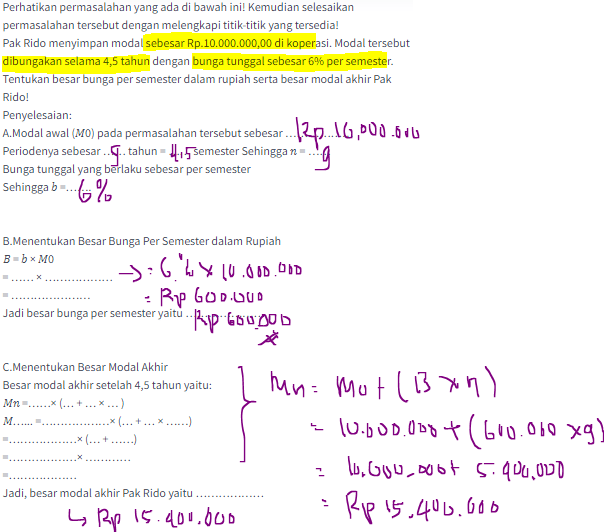 Perhatikan permasalahan yang ada di bawah ini! Kemudian selesaikan
permasalahan tersebut dengan melengkapi titik-titik yang tersedia!
Pak Rido menyimpan modal sebesar Rp.10.000.000,00 di koperasi. Modal tersebut
dibungakan selama 4,5 tahun dengan bunga tunggal sebesar 6% per semester.
Tentukan besar bunga per semester dalam rupiah serta besar modal akhir Pak
Rido!
Penyelesaian:
A.Modal awal (M0) pada permasalahan tersebut sebesar ... Rp 10,000.000
Periodenya sebesar ..9.. tahun = 4,5 semester Sehingga n = .... 9
Bunga tunggal yang berlaku sebesar per semester
Sehingga b =...... 6%
B.Menentukan Besar Bunga Per Semester dalam Rupiah
B = b × M0
= ...... × .................. → = 6% x 10.000.000
= ..................... = Rp 600.000
Jadi besar bunga per semester yaitu .. Rp 600.000
C.Menentukan Besar Modal Akhir
Besar modal akhir setelah 4,5 tahun yaitu:
Mn =......× (... + ... × ... )
M...... =..................× (... + ... × ......)
=..................× (... + ......)
=..................× ............
=..................
Mn = Mo + (B x n)
= 10.000.000 + (600.000 x 9)
= 10.000.000 + 5.400.000
= Rp 15.400.000
Jadi, besar modal akhir Pak Rido yaitu ..................
↳ Rp 15.400.000